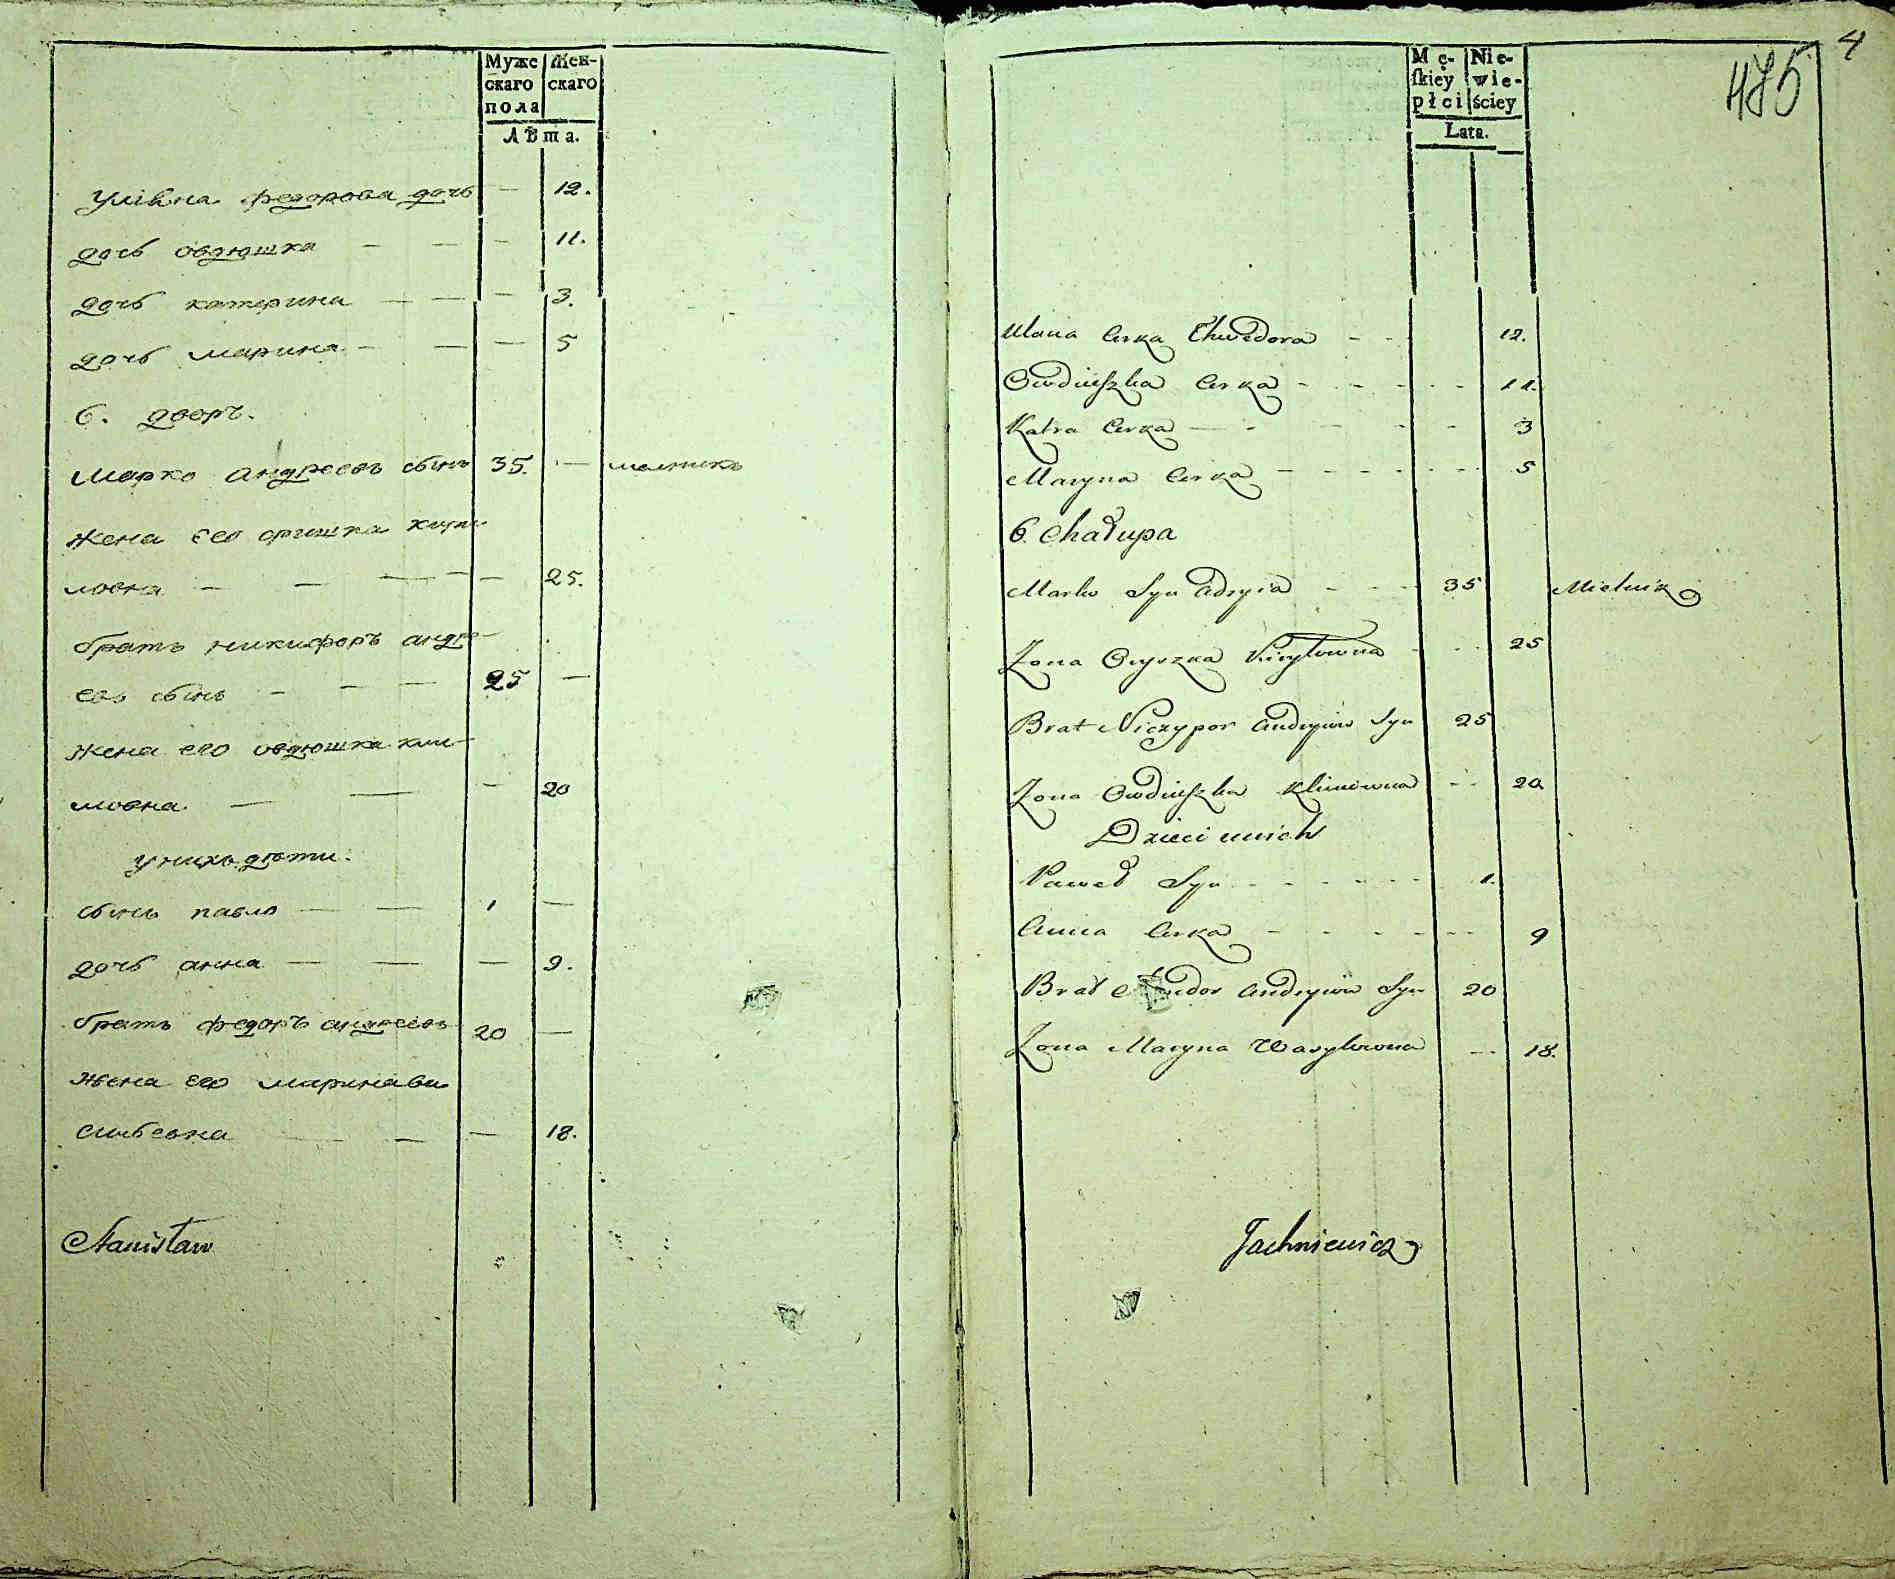 Муже
скаго
пола
Жен-
скаго
Лѣта.
Улѣяна федорова дочь — 12.
дочь овдюшка — — — 11.
дочь катерина — — — 3.
дочь марина — — — 5
6. дворъ.
Марко андреевъ сынъ 35. — мелникъ
жена его оришка кири-
ловна — — — — 25.
братъ никифоръ андре-
евъ сынъ — — — 25 —
жена его овдюшка кли-
мовна — — — 20
у нихъ дѣти.
сынъ павло — — 1 —
дочь анна — — — 9.
братъ федоръ андреевъ 20 —
жена его марина ва-
сильевна — — — 18.
Stanisław
4
475
Mę-
skiey
płci
Nie-
wie-
ściey
Lata.
Ulana Curka Chwedora - - 12.
Owdiuszka Curka - - - - - 11.
Katra Curka — - - - - 3
Maryna Curka - - - - - - 5
6. Chałupa
Marko Syn Adryia - - - 35 Mielnik
Zona Oryszka Kiryłowna - - - 25
Brat Niczypor Andryiow Syn 25
Zona Owdiuszka Klimowna - - 20
Dzieci unich
Paweł Syn - - - - - - 1.
Anna Curka - - - - - - 9
Brat Andryiow Syn 20
Zona Maryna Wasylowna - - 18.
Jachniewicz